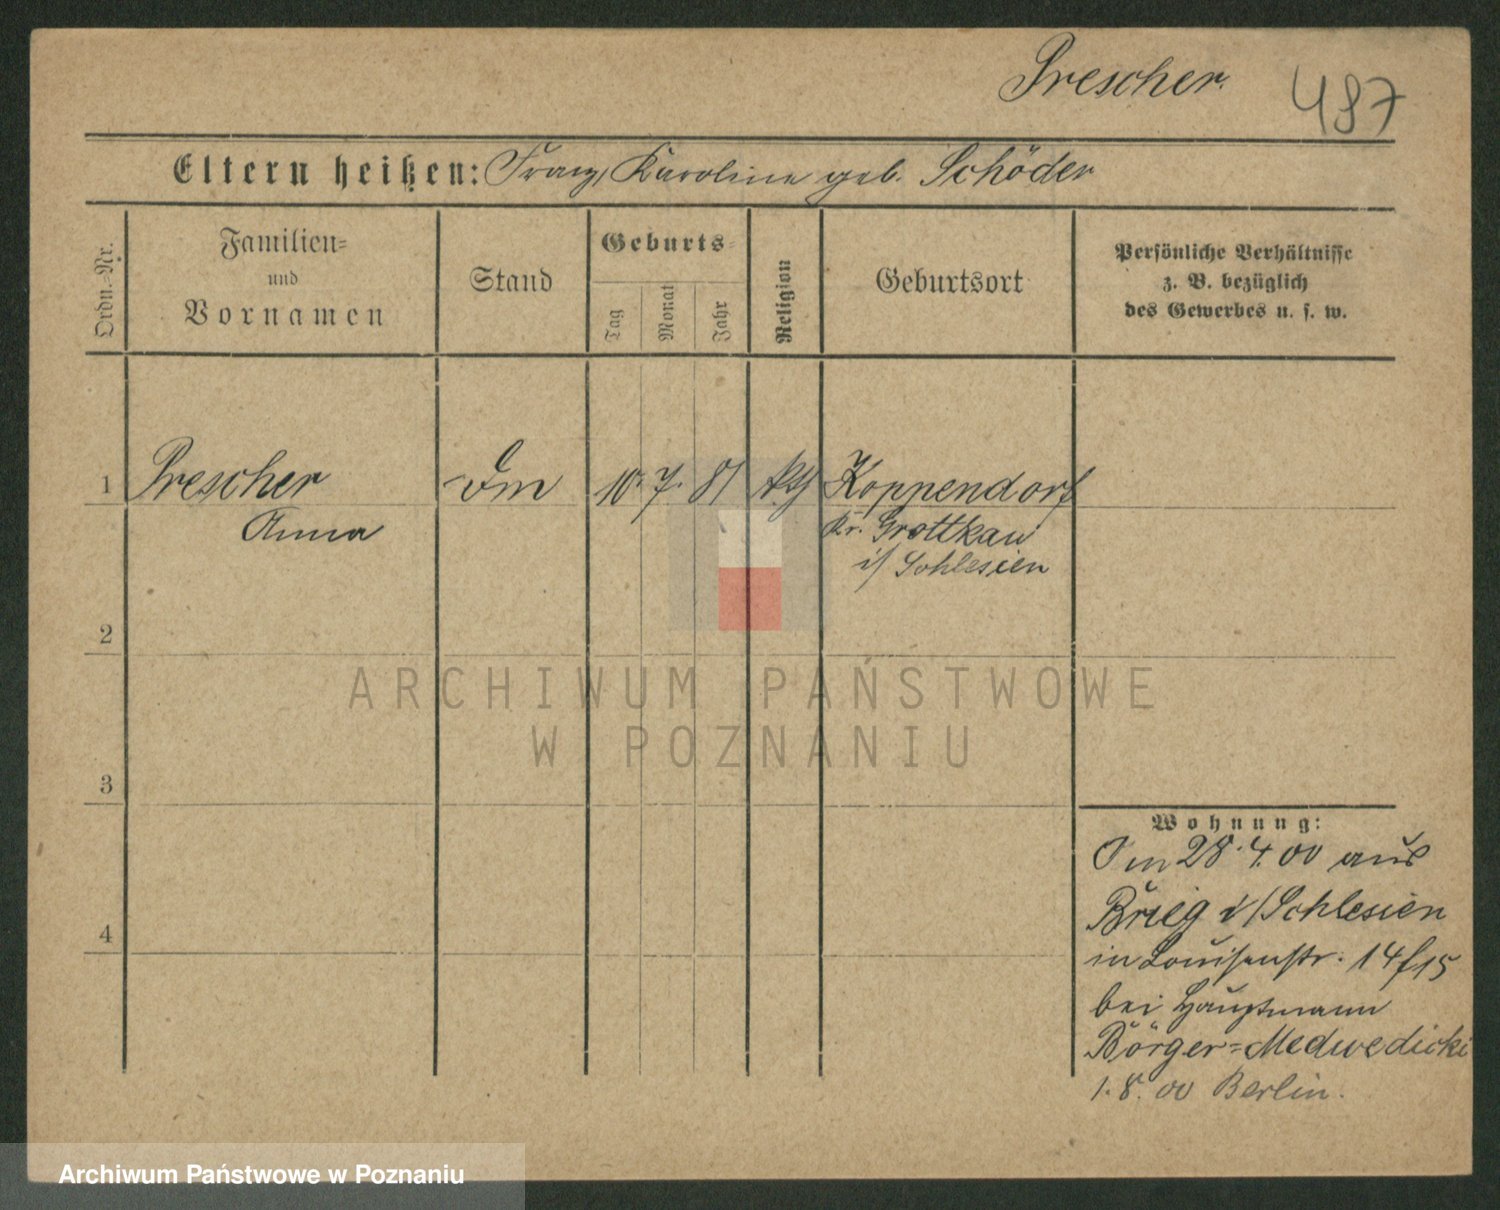 Prescher. 487
Eltern heißen: Franz, Karoline geb. Schöder
Ordn.-Nr.
Familien-
und
Vornamen
Stand
Geburts-
Tag
Monat
Jahr
Religion
Geburtsort
Persönliche Verhältnisse
z. B. bezüglich
des Gewerbes u. s. w.
1 Prescher 10. 7. 81 Koppendorf
Anna Kr. Grottkau
i/ Schlesien
2
ARCHIWUM PAŃSTWOWE
W POZNANIU
3
Wohnung:
28.4.00 aus
Brieg i/Schlesien
in Louisenstr. 14/15
4
bei Hauptmann
Börger-Medwedicki
1.8.00 Berlin.
Archiwum Państwowe w Poznaniu